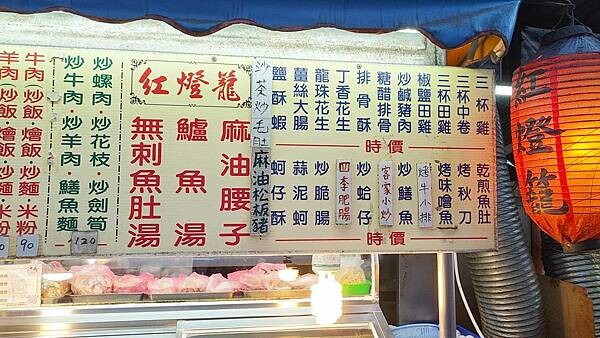 三杯雞
三杯中卷
三杯田雞
椒鹽田雞
炒鹹豬肉
糖醋排骨
排骨酥
丁香花生
龍珠花生
薑絲大腸
鹽酥蝦
時價
乾煎魚肚
烤秋刀
烤味噌魚
烤牛小排
炒鱔魚
客家小炒
炒蛤仔
四季肥腸
炒脆腸
蒜泥蚵
蚵仔酥
時價
沙茶炒毛肚
麻油松板豬
紅燈籠
麻油腰子
鱸魚湯
無刺魚肚湯
炒螺肉·炒花枝·炒劍筍
炒牛肉·炒羊肉·鱔魚麵
120
牛肉炒飯·燴飯·炒麵·米粉
羊肉炒飯·燴飯·炒麵·米粉
90
紅燈籠